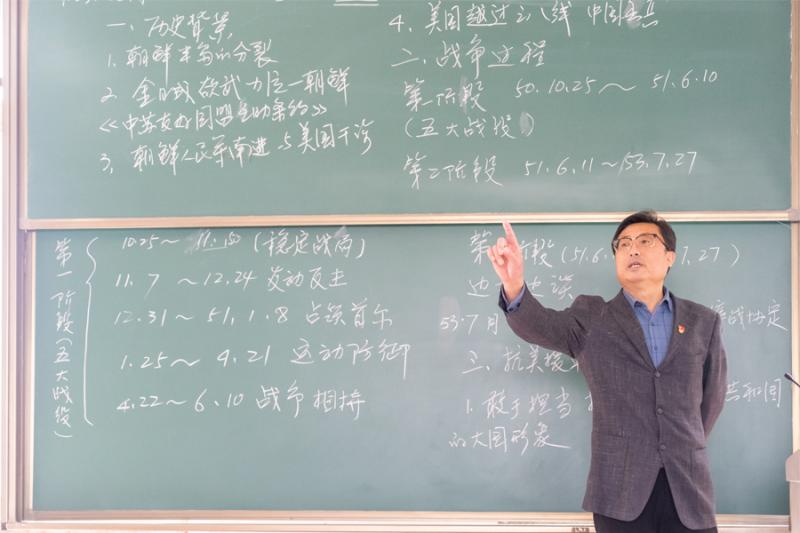 一、历史背景
1. 朝鲜半岛的分裂
2. 金日成欲武力统一朝鲜
《中苏友好同盟互助条约》
3. 朝鲜人民军南进与美国干涉
4. 美国越过三八线 中国出兵
二、战争过程
第一阶段 50.10.25~51.6.10
(五大战役)
第二阶段 51.6.11~53.7.27
第一阶段(五大战役)
10.25~11.  (稳定战局)
11.7~12.24 发动反击
12.31~51.1.8 占领首尔
1.25~4.21 运动防御
4.22~6.10 战争相持
第 阶段(51.6. 7.27)
边
53.7月 停战协定
三、抗美援
1. 敢于担当 共和国
的大国形象